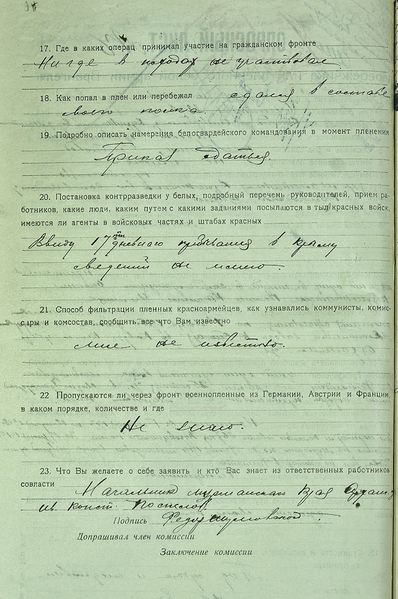 17. Где в каких операц принимал участие на гражданском фронте
Нигде в походах не участвовал
18. Как попал в плен или перебежал сдался в составе
моего полка
19. Подробно описать намерения белогвардейского командования в момент пленения
Приказ сдаться.
20. Постановка контрразведки у белых, подробный перечемь руководителей, прием ра-
ботников, какие люди, каким путем с какими заданиями посылаются в тыл красных войск,
имеются ли агенты в войсковых частях и штабах красных
Ввиду 17ти дневного пребывания в Крыму
сведений не имею.
21. Способ фильтрации пленных красноармейцев, как узнавались коммунисты, комис-
сары и комсостав, сообщить все что Вам известно
мне не известно.
22 Пропускаются ли через фронт военнопленные из Германии, Австрии и Франции,
в каком порядке, количестве и где
Не знаю.
23. Что Вы желаете о себе заявить и кто Вас знает из ответственных работников
совласти Начальник
Подпись
Допрашивал член комиссии
Заключение комиссии